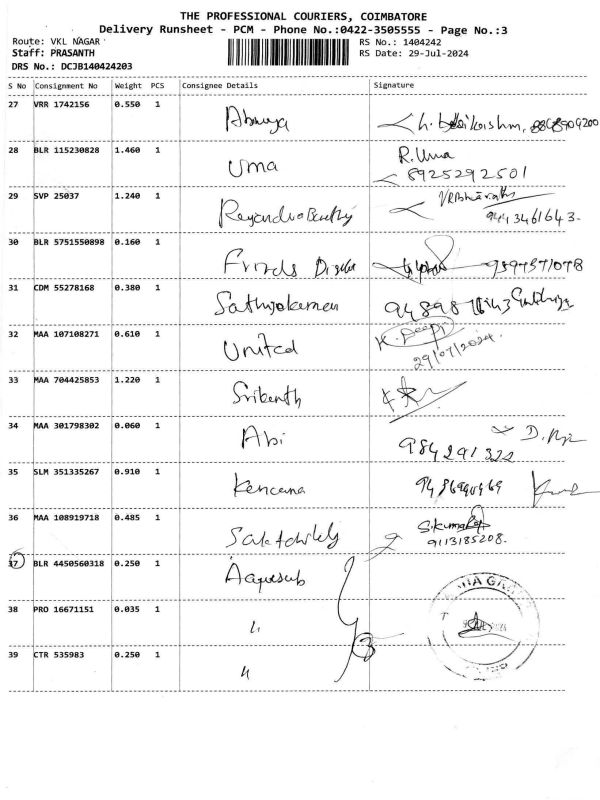 THE PROFESSIONAL COURIERS, COIMBATORE
Delivery Runsheet - PCM - Phone No.:0422-3505555 - Page No.:3
Route: VKL NAGAR RS No.: 1404242
Staff: PRASANTH RS Date: 29-Jul-2024
DRS No.: DCJB140424203
S No Consignment No Weight PCS Consignee Details Signature
27 VRR 1742156 0.550 1
28 BLR 115230828 1.460 1 Uma R. Uma
8925292501
29 SVP 25037 1.240 1 VRBharathi
9443461643.
30 BLR 5751550898 0.160 1
31 CDM 55278168 0.380 1 Sathyakumar
32 MAA 107108271 0.610 1 United K. Deepi
29/07/2024.
33 MAA 704425853 1.220 1 Srikanth
34 MAA 301798302 0.060 1 Abi D.
984291322
35 SLM 351335267 0.910 1 Kencana
36 MAA 108919718 0.485 1 S.Kumar
9113185208.
37 BLR 4450560318 0.250 1
38 PRO 16671151 0.035 1 "
39 CTR 535983 0.250 1 "